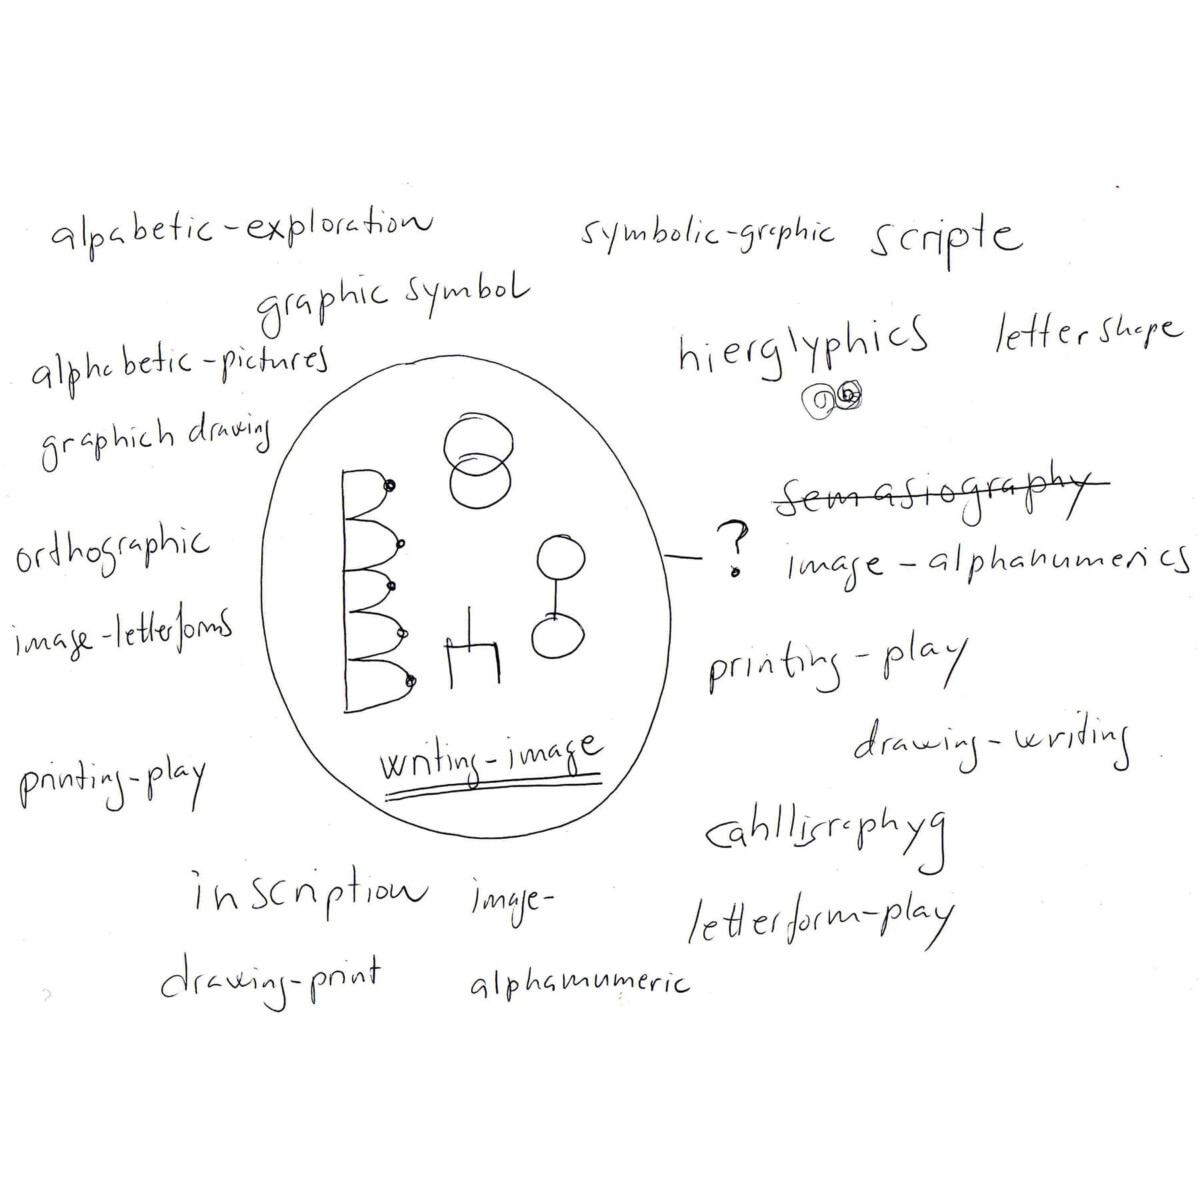 alpabetic-exploration
symbolic-graphic scripte
graphic symbol
hierglyphics
lettershape
alphabetic-pictures
graphich drawing
semasiography
orthographic
?
image-alphanumerics
image-letterforms
printing-play
drawing-writing
writing-image
printing-play
cahlligraphyg
inscription
image-
letterform-play
drawing-print
alphamumeric